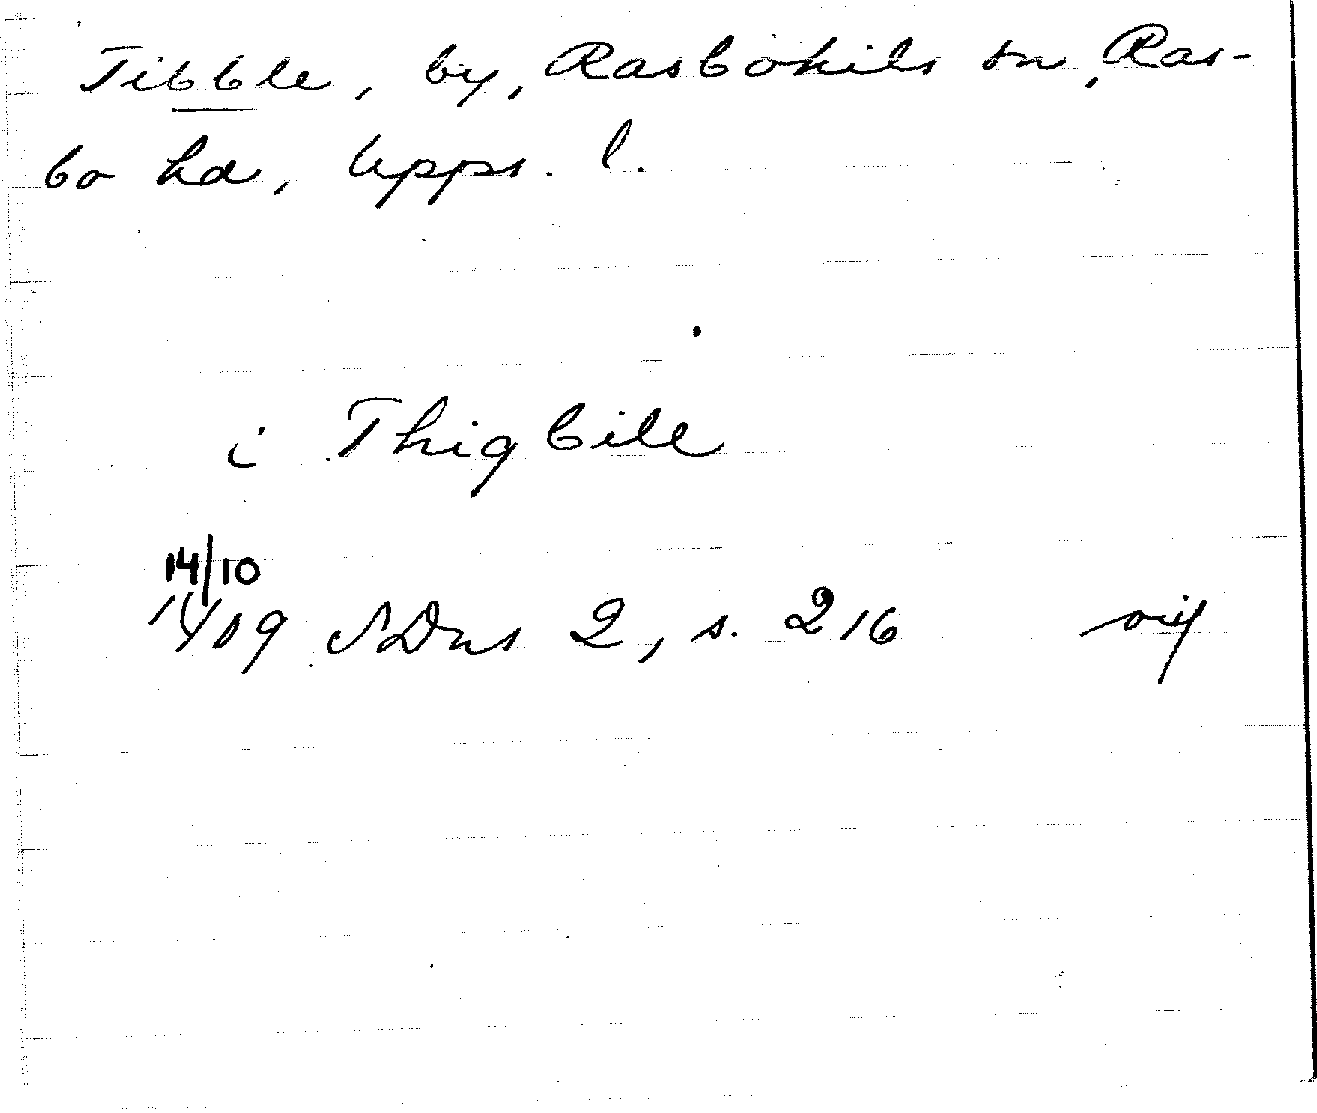 Tibble, by, Rasbokils sn, Ras-
bo hd, Upps. l.
i Thigbille
14/10
1409 SDns 2, s. 216 orig